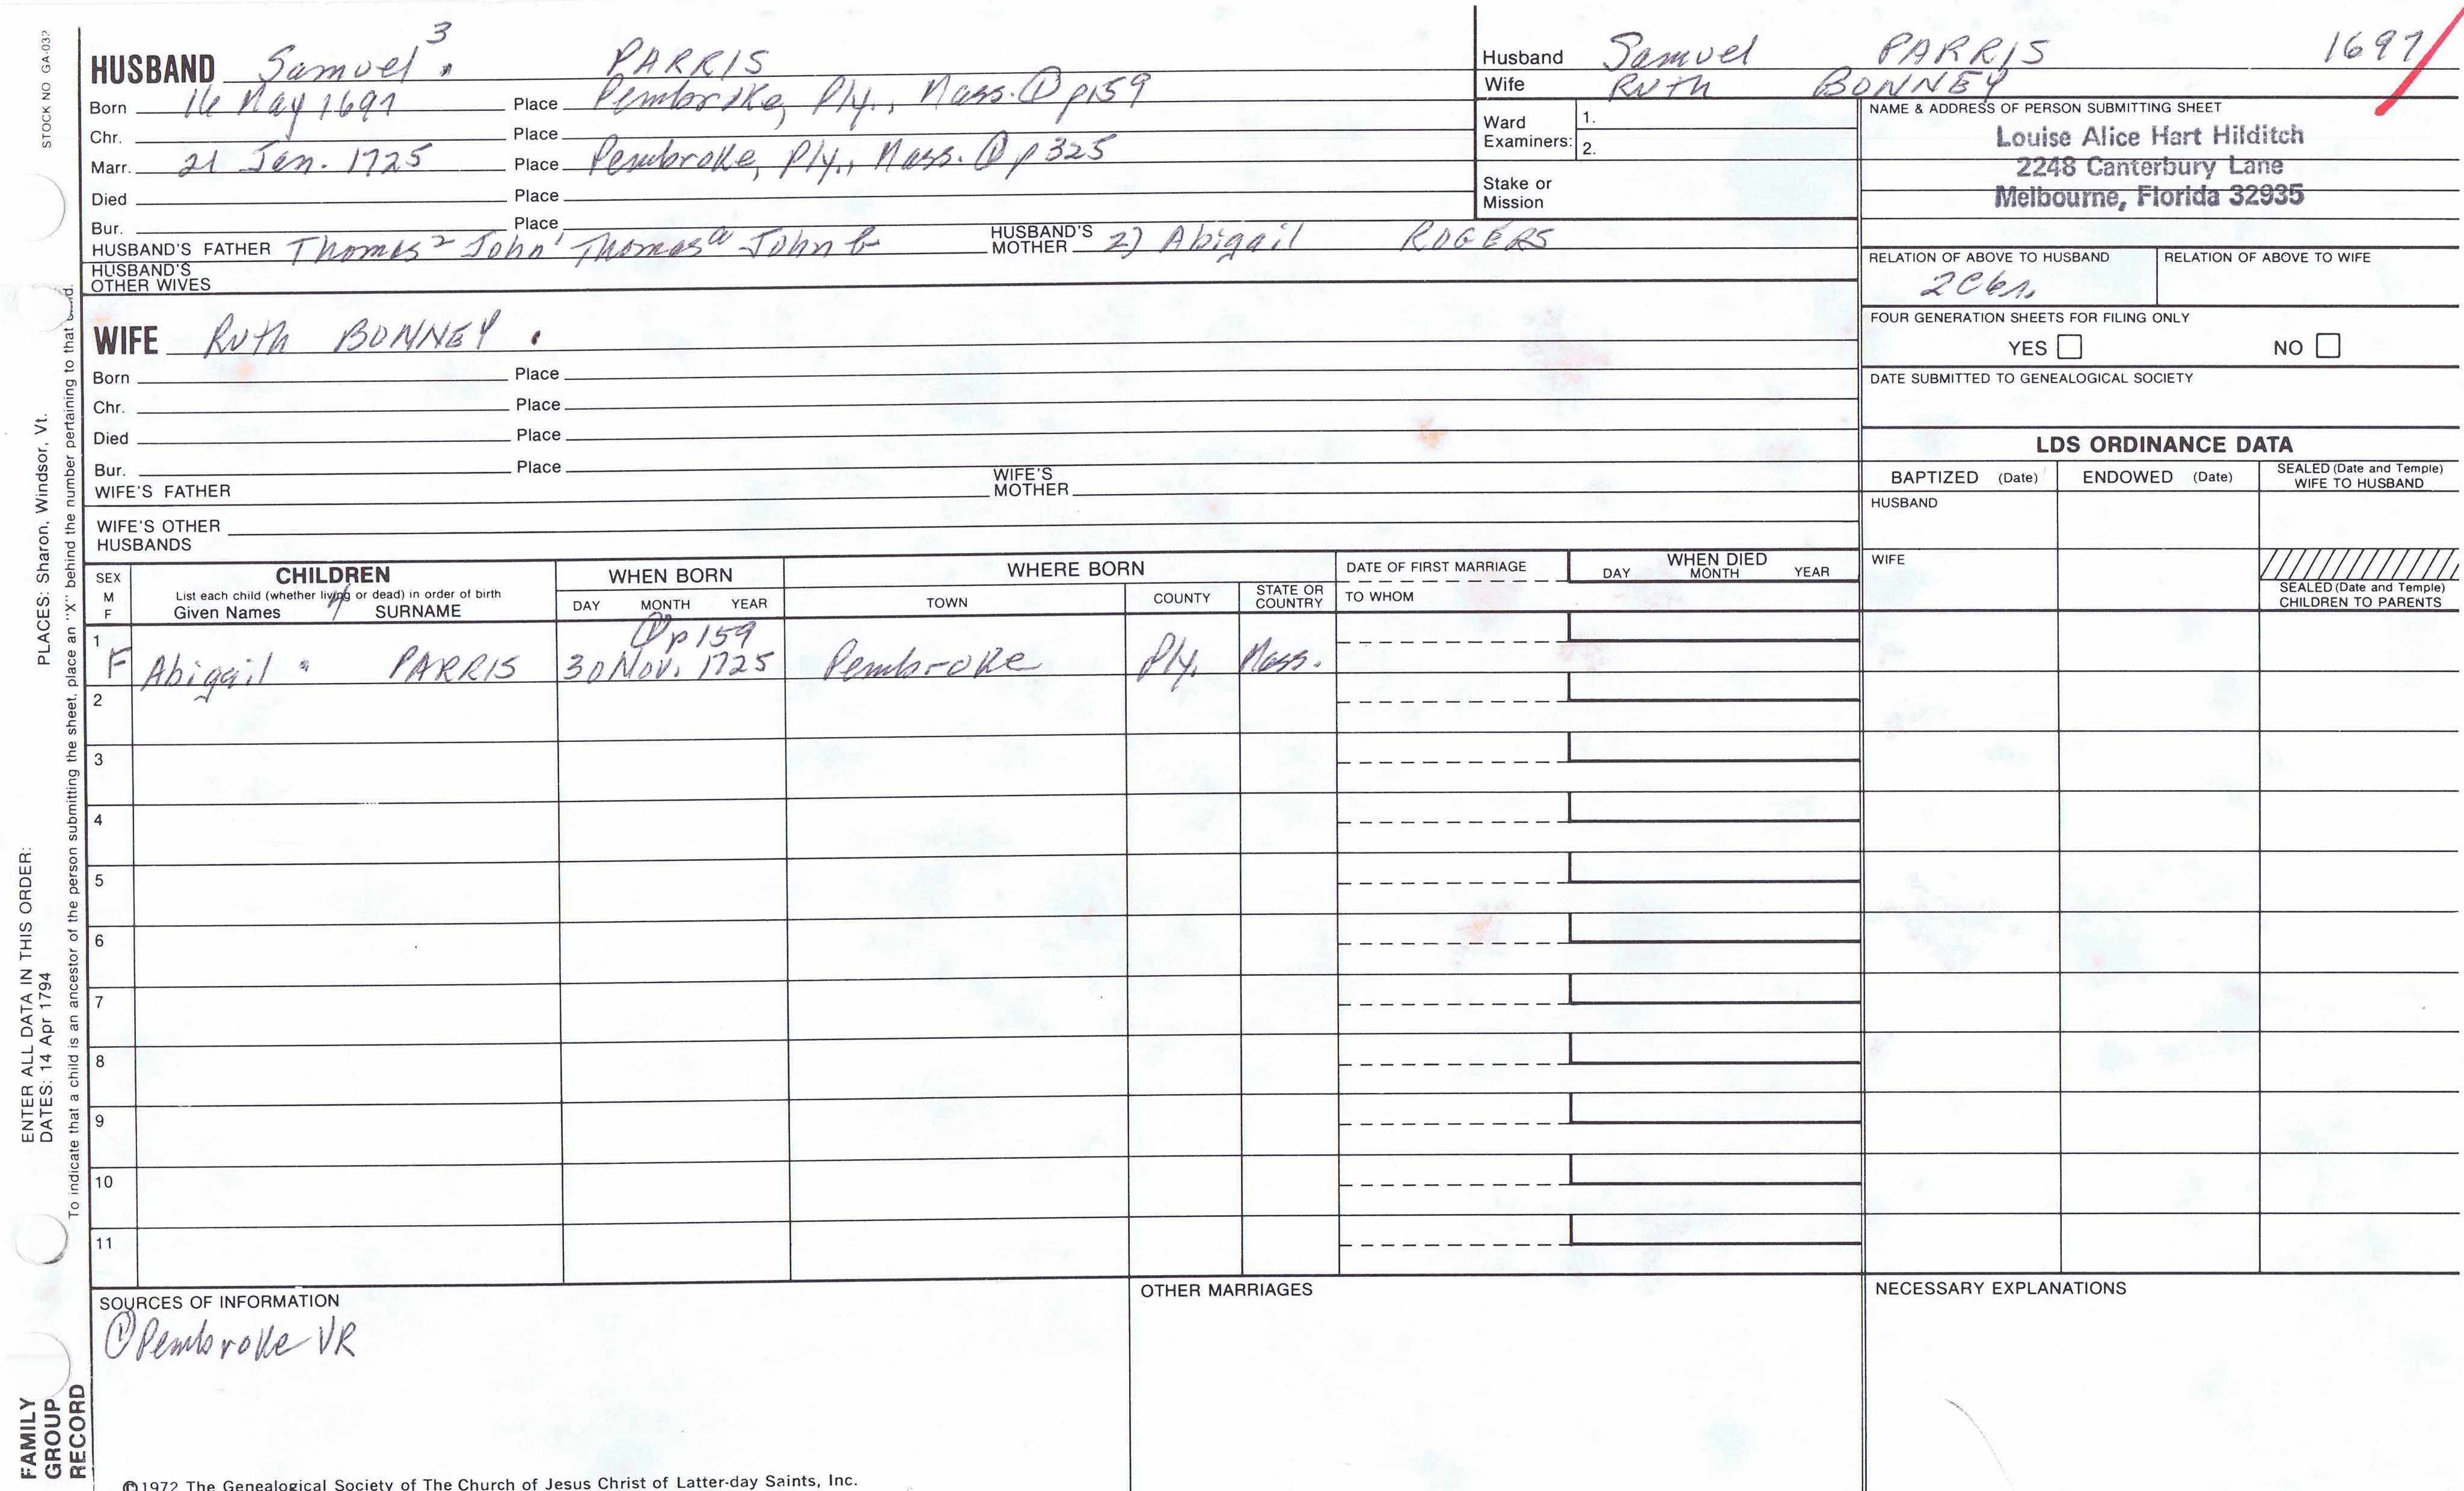 STOCK NO GA-032
HUSBAND Samuel 3 PARRIS
Born 16 May 1697 Place Pembroke, Ply., Mass. ① p159
Chr. Place
Marr. 21 Jan. 1725 Place Pembroke, Ply., Mass. ① p 325
Died Place
Bur. Place
HUSBAND'S FATHER Thomas 2 John 1 Thomas a John b HUSBAND'S MOTHER 2) Abigail ROGERS
HUSBAND'S OTHER WIVES
Husband Samuel PARRIS 1697
Wife Ruth BONNEY
Ward Examiners: 1.
2.
Stake or Mission
NAME & ADDRESS OF PERSON SUBMITTING SHEET
Louise Alice Hart Hilditch
2248 Canterbury Lane
Melbourne, Florida 32935
RELATION OF ABOVE TO HUSBAND RELATION OF ABOVE TO WIFE
FOUR GENERATION SHEETS FOR FILING ONLY
YES NO
DATE SUBMITTED TO GENEALOGICAL SOCIETY
WIFE Ruth BONNEY
Born Place
Chr. Place
Died Place
Bur. Place
WIFE'S FATHER WIFE'S MOTHER
WIFE'S OTHER HUSBANDS
LDS ORDINANCE DATA
BAPTIZED (Date) ENDOWED (Date) SEALED (Date and Temple) WIFE TO HUSBAND
HUSBAND
WIFE
SEALED (Date and Temple) CHILDREN TO PARENTS
SEX M F
CHILDREN
List each child (whether living or dead) in order of birth
Given Names SURNAME
WHEN BORN
DAY MONTH YEAR
WHERE BORN
TOWN COUNTY STATE OR COUNTRY
DATE OF FIRST MARRIAGE
TO WHOM
WHEN DIED
DAY MONTH YEAR
① p159
1 F Abigail PARRIS 30 Nov. 1725 Pembroke Ply. Mass.
2
3
4
5
6
7
8
9
10
11
SOURCES OF INFORMATION
① Pembroke VR
OTHER MARRIAGES
NECESSARY EXPLANATIONS
©1972 The Genealogical Society of The Church of Jesus Christ of Latter-day Saints, Inc.
FAMILY GROUP RECORD
ENTER ALL DATA IN THIS ORDER:
DATES: 14 Apr 1794 PLACES: Sharon, Windsor, Vt.
To indicate that a child is an ancestor of the person submitting the sheet, place an "X" behind the number pertaining to that